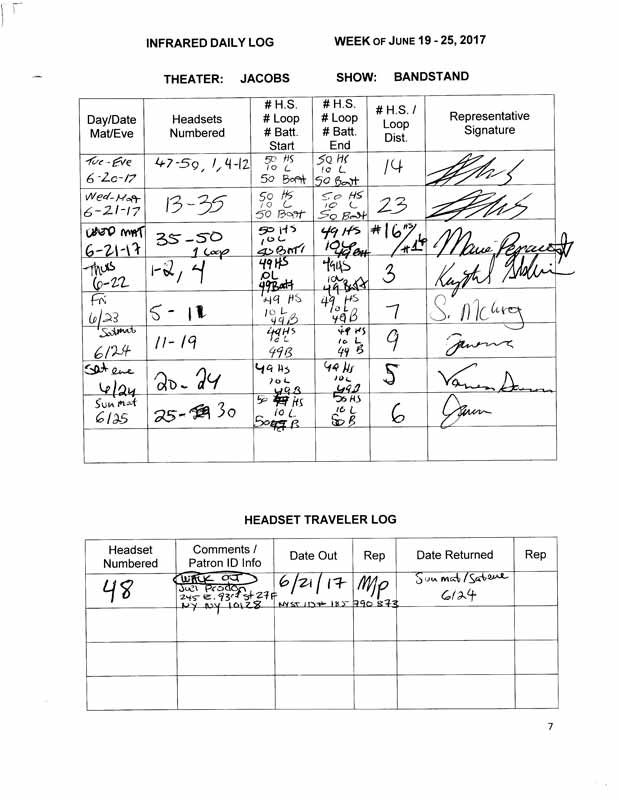 INFRARED DAILY LOG WEEK OF JUNE 19 - 25, 2017
THEATER: JACOBS SHOW: BANDSTAND
Day/Date Mat/Eve Headsets Numbered # H.S. # Loop # Batt. Start # H.S. # Loop # Batt. End # H.S. / Loop Dist. Representative Signature
Tue-Eve 6-20-17 47-50, 1, 4-12 50 HS 10 L 50 Batt 50 HS 10 L 50 Batt 14
Wed-Mat 6-21-17 13-35 50 HS 10 L 50 Batt 50 HS 10 L 50 Batt 23
WED MAT 6-21-17 35-50 1 Loop 50 HS 10 L 50 BATT 49 HS 10 L 49 Batt #16 HS / #1 lp
Thus 6-22 1-2, 4 49HS 10L 49Batt 49HS 10L 49 Batt 3
Fri 6/23 5 - 11 49 HS 10 L 49B 49 HS 10 L 49B 7 S. McIlroy
Satmat 6/24 11-19 49HS 10L 49B 49 HS 10 L 49 B 9
Sat eve 6/24 20-24 49 HS 10L 49B 49 HS 10L 49B 5
Sun mat 6/25 25- 30 50 HS 10 L 50 B 50 HS 10 L 50 B 6
HEADSET TRAVELER LOG
Headset Numbered Comments / Patron ID Info Date Out Rep Date Returned Rep
48 WALK OFF 6/21/17 MP Sun mat/Sat eve
245 E. 93rd St 27F 6/24
NY NY 10128 NYST ID# 185 790 873
7